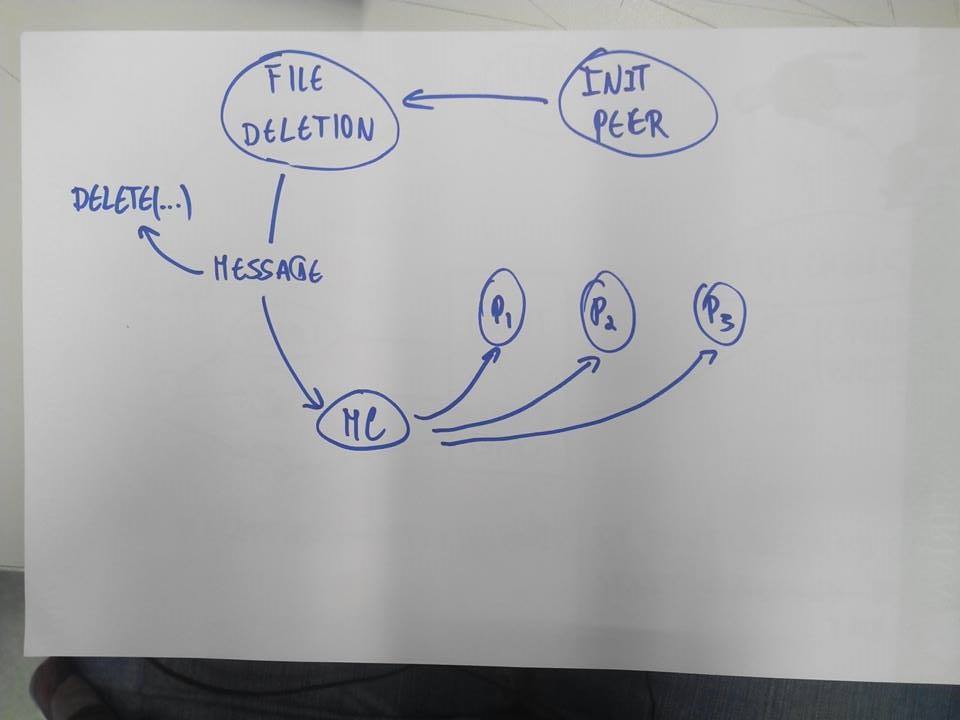 FILE
DELETION
INIT
PEER
DELETE(...)
MESSAGE
P1
P2
P3
MC